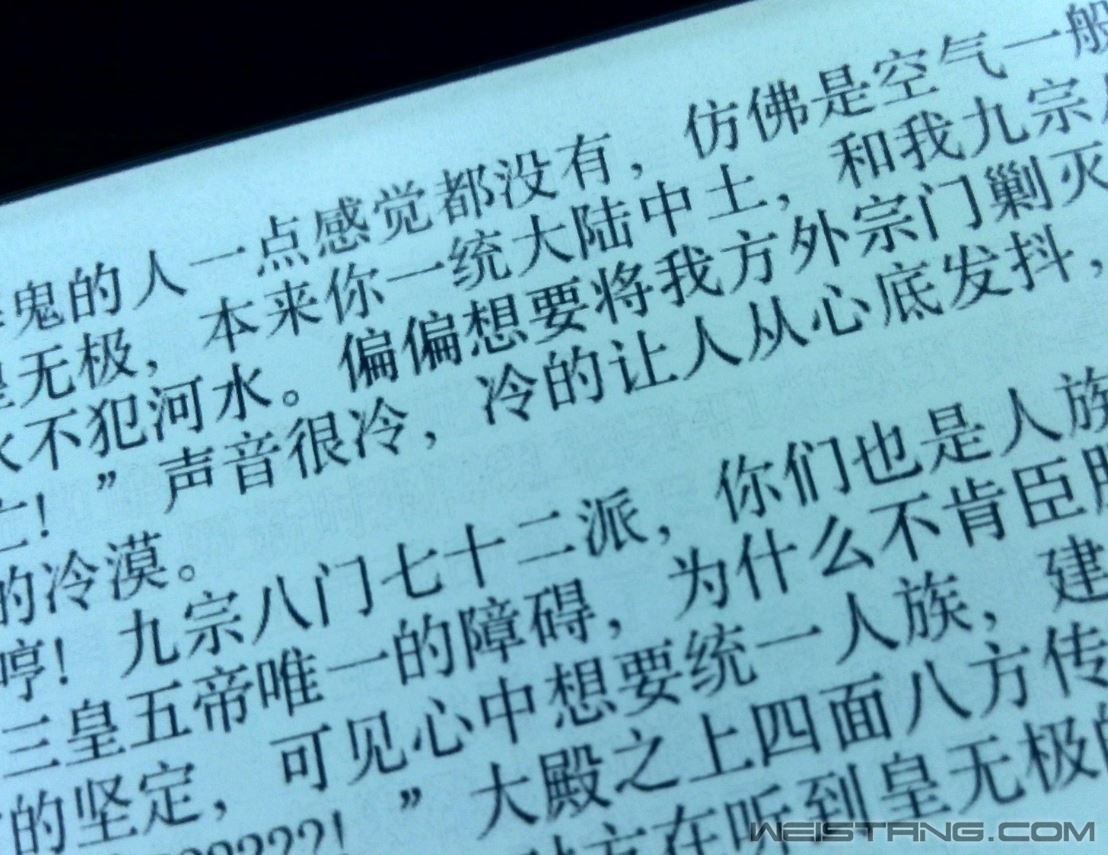 鬼的人一点感觉都没有，仿佛是空气一般
无极，本来你一统大陆中土，和我九宗
水不犯河水。偏偏想要将我方外宗门剿灭
亡！”声音很冷，冷的让人从心底发抖，
的冷漠。
哼！九宗八门七十二派，你们也是人族
三皇五帝唯一的障碍，为什么不肯臣服
的坚定，可见心中想要统一人族，建
”大殿之上四面八方传
方在听到皇无极的
WEISTANG.COM